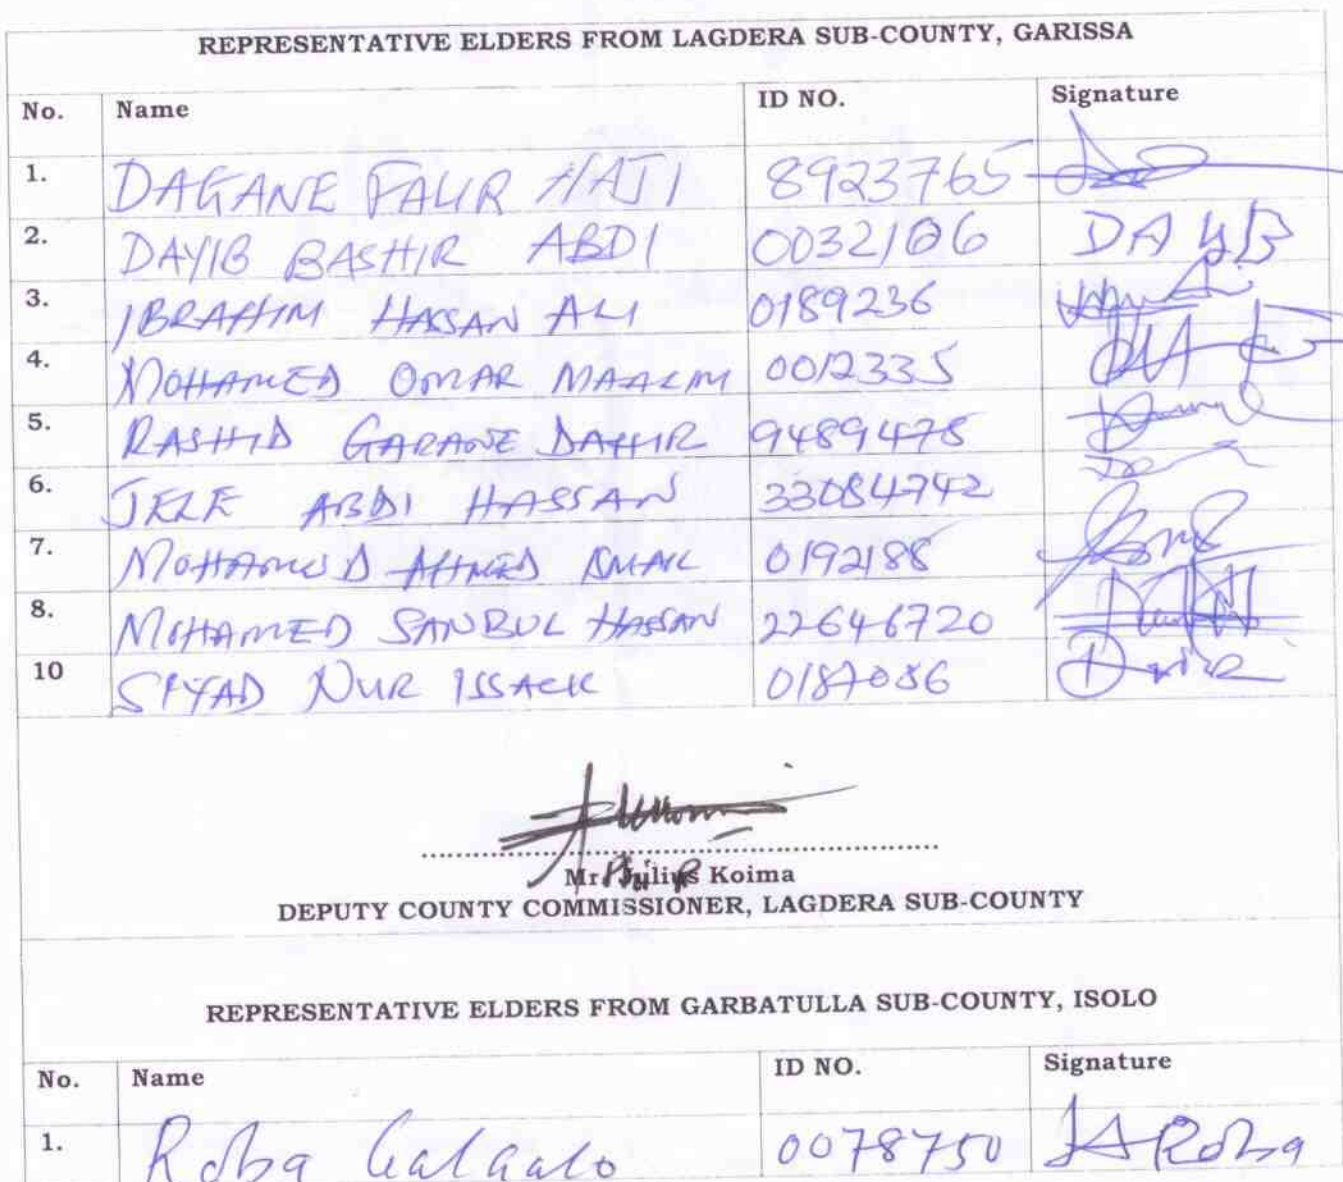 REPRESENTATIVE ELDERS FROM LAGDERA SUB-COUNTY, GARISSA
No. Name ID NO. Signature
1. DAGANE FALIR HAJI 8923765
2. DAYIB BASHIR ABDI 0032106 DAYB
3. IBRAHIM HASSAN ALI 0189236
4. MOHAMED OMAR MAALIM 0012335
5. RASHID GARANE DAHIR 9489475
6. JELE ABDI HASSAN 33084742
7. MOHAMED AHMED 0192188
8. MOHAMED SANBUL HASSAN 22646720
10 SIYAD NUR ISSACK 0187086
Mr. Julius Koima
DEPUTY COUNTY COMMISSIONER, LAGDERA SUB-COUNTY
REPRESENTATIVE ELDERS FROM GARBATULLA SUB-COUNTY, ISOLO
No. Name ID NO. Signature
1. Roba Galgalo 0078750 Roba